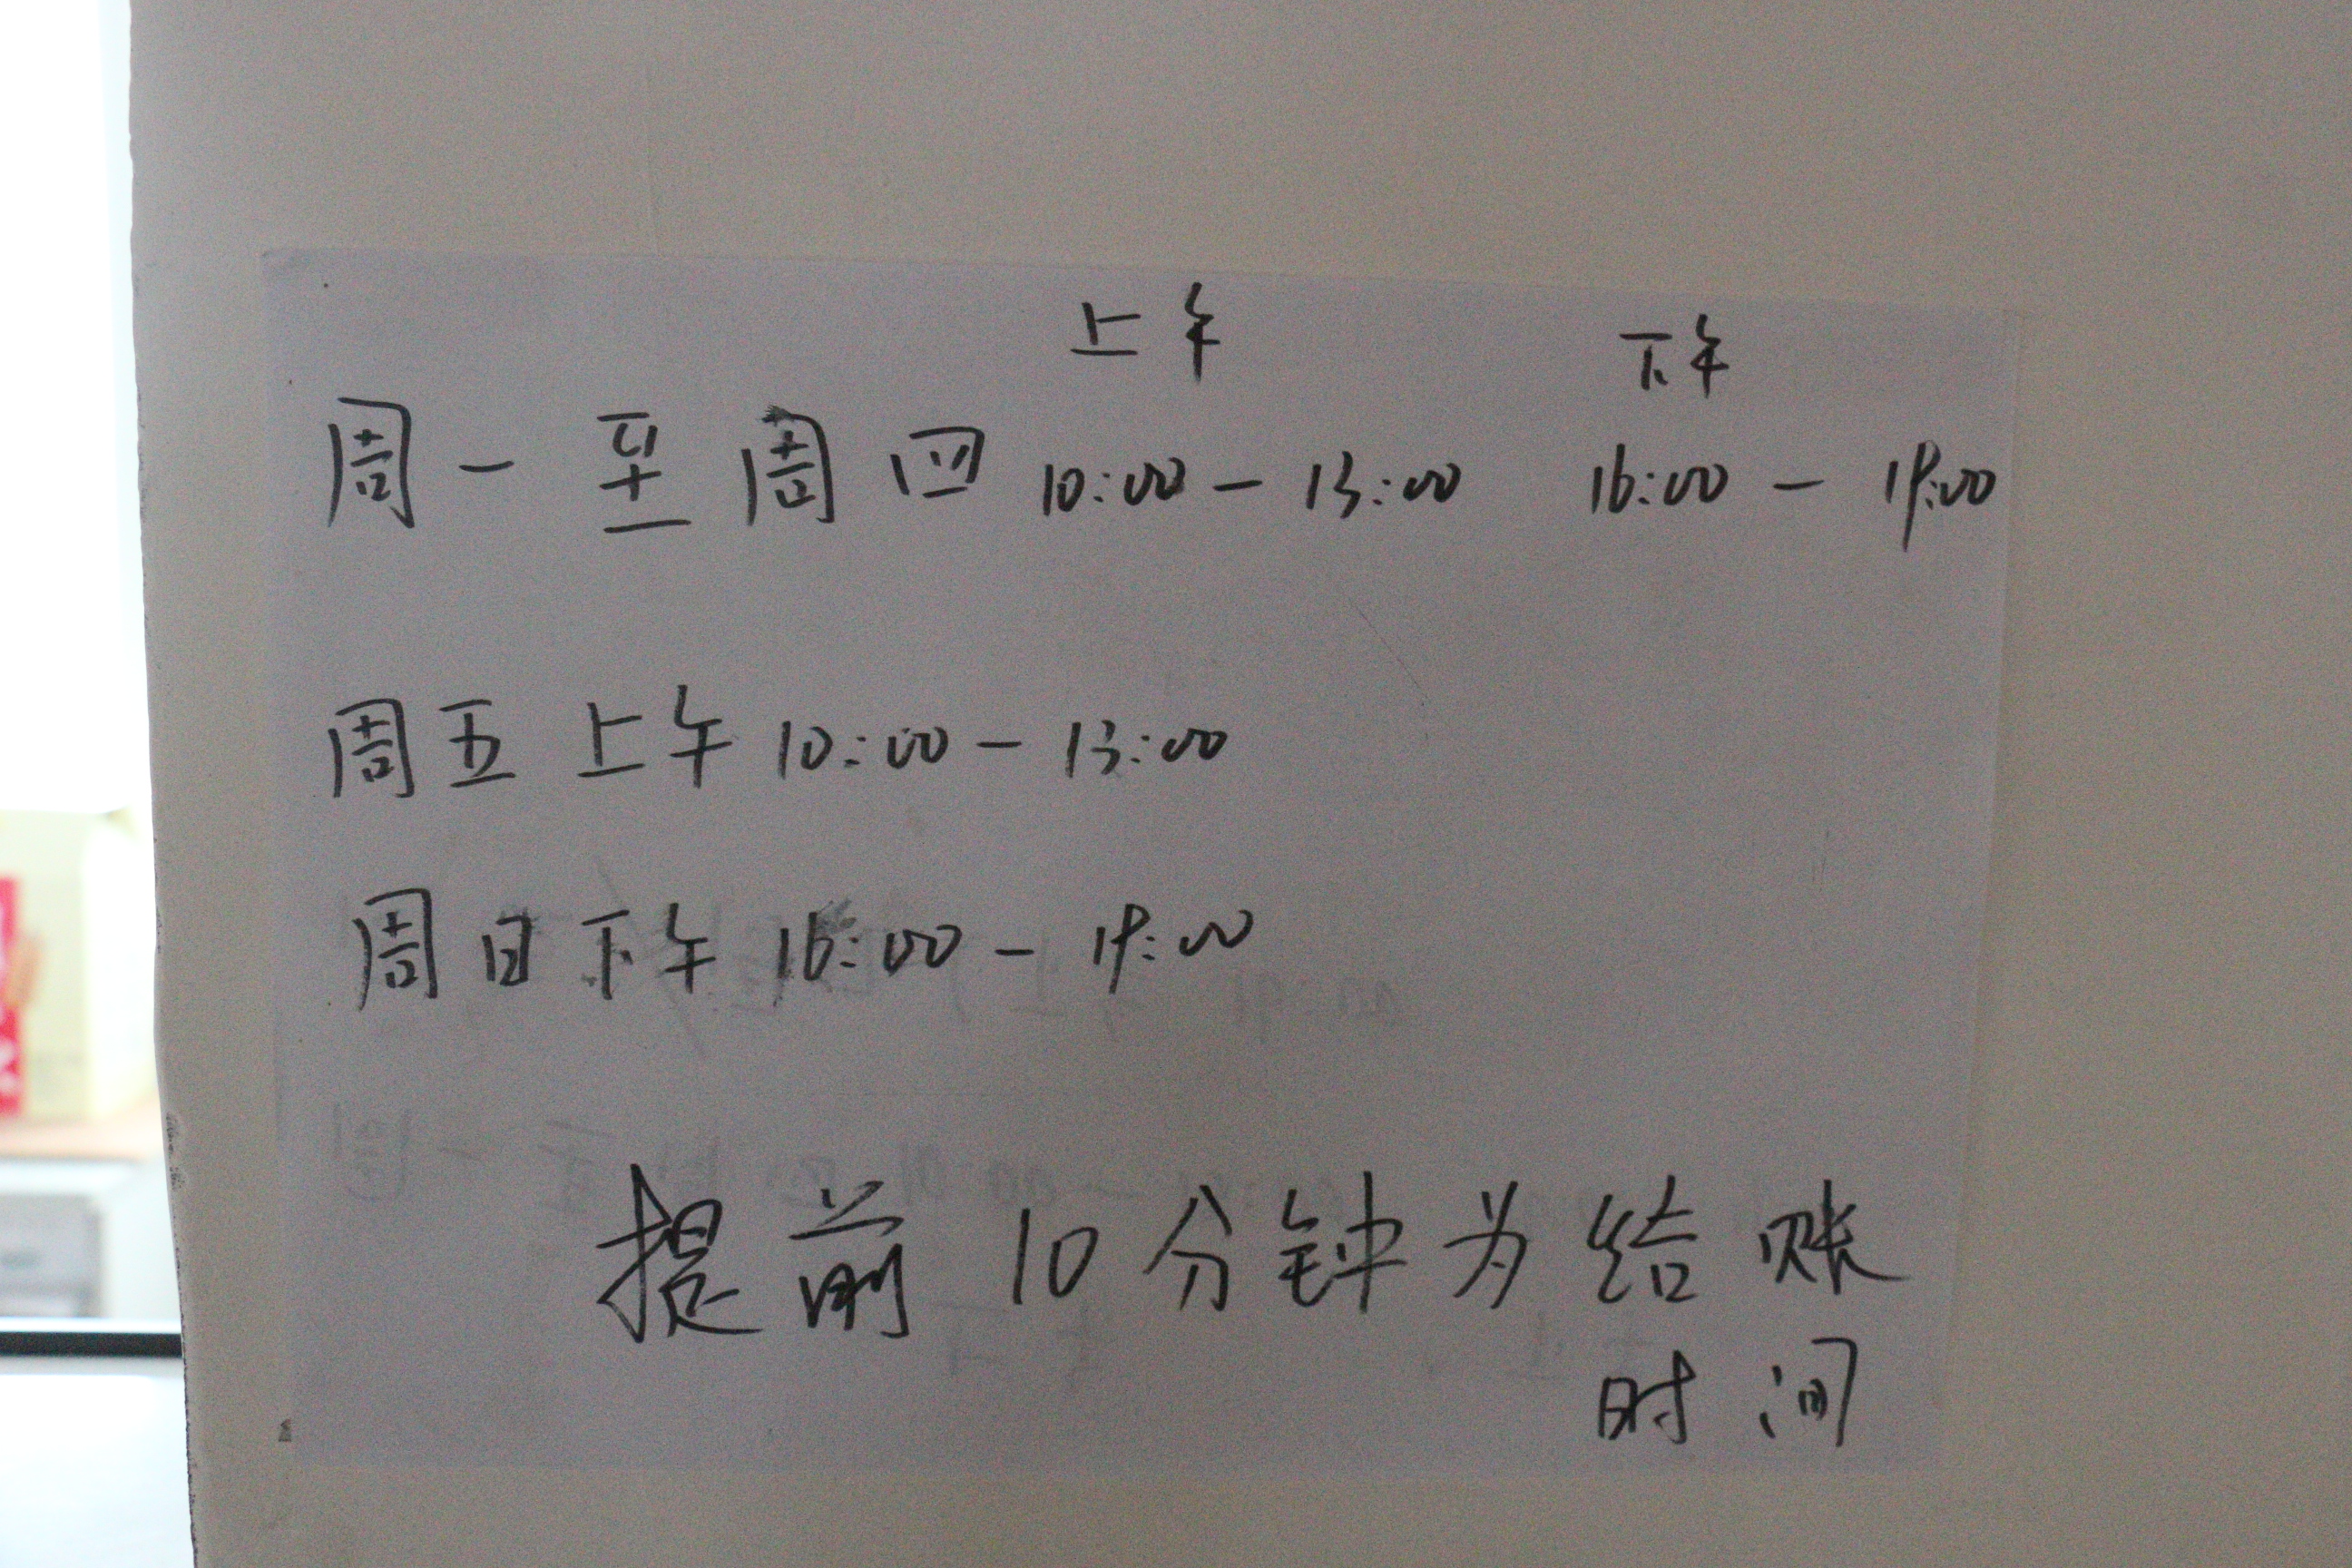 上午 下午
周一至周四 10:00-13:00 16:00-19:00
周五上午 10:00-13:00
周日下午 16:00-19:00
提前10分钟为给账
时间